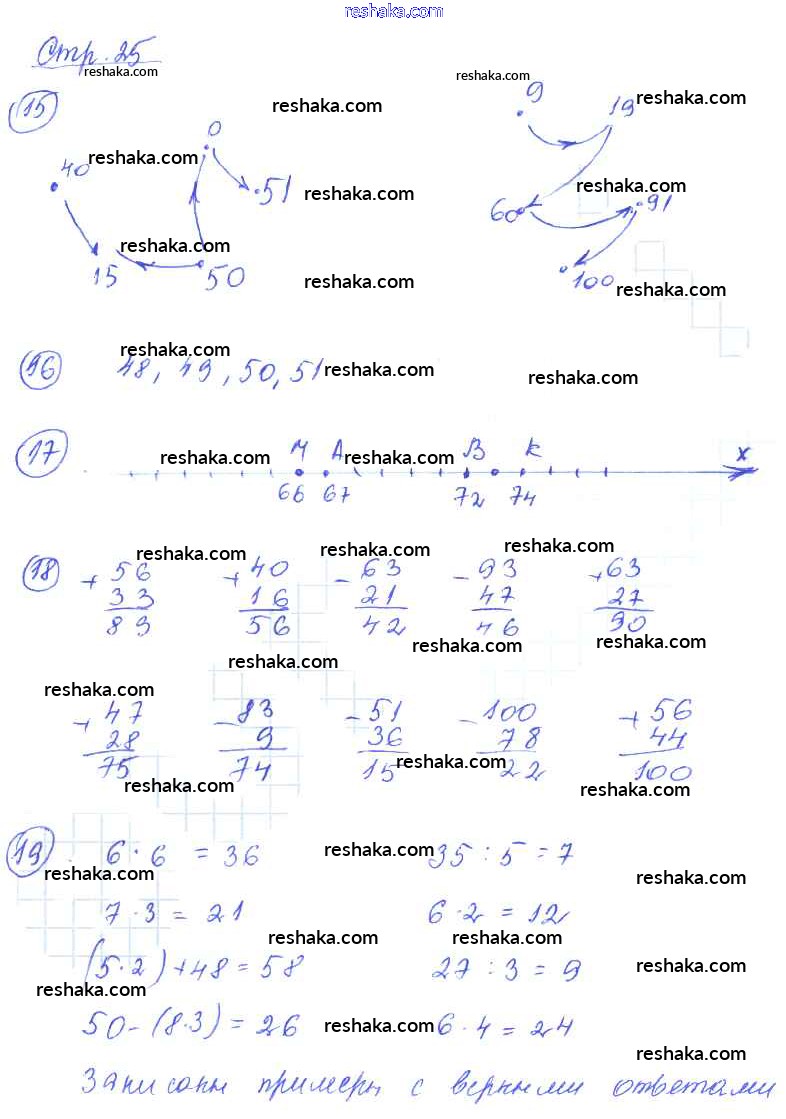 reshaka.com
Стр. 25
reshaka.com
reshaka.com
15
reshaka.com
9
19 reshaka.com
0
40 reshaka.com
51 reshaka.com
reshaka.com
60
91
reshaka.com
15
50
reshaka.com
100
reshaka.com
reshaka.com
16 48, 49, 50, 51 reshaka.com
reshaka.com
17
reshaka.com
М А reshaka.com В К х
66 67 72 74
reshaka.com reshaka.com reshaka.com
18 + 56 + 40 - 63 - 93 + 63
33 16 21 47 27
89 56 42 46 90
reshaka.com reshaka.com
reshaka.com
reshaka.com
+ 47 - 83 - 51 - 100 + 56
28 9 36 78 44
75 74 15 22 100
reshaka.com
reshaka.com reshaka.com
19 6 · 6 = 36 reshaka.com 35 : 5 = 7
reshaka.com reshaka.com
7 · 3 = 21 6 · 2 = 12
reshaka.com reshaka.com
(5·2) + 48 = 58 27 : 3 = 9 reshaka.com
reshaka.com
50 - (8·3) = 26 reshaka.com 6 · 4 = 24
reshaka.com
Записаны примеры с верными ответами